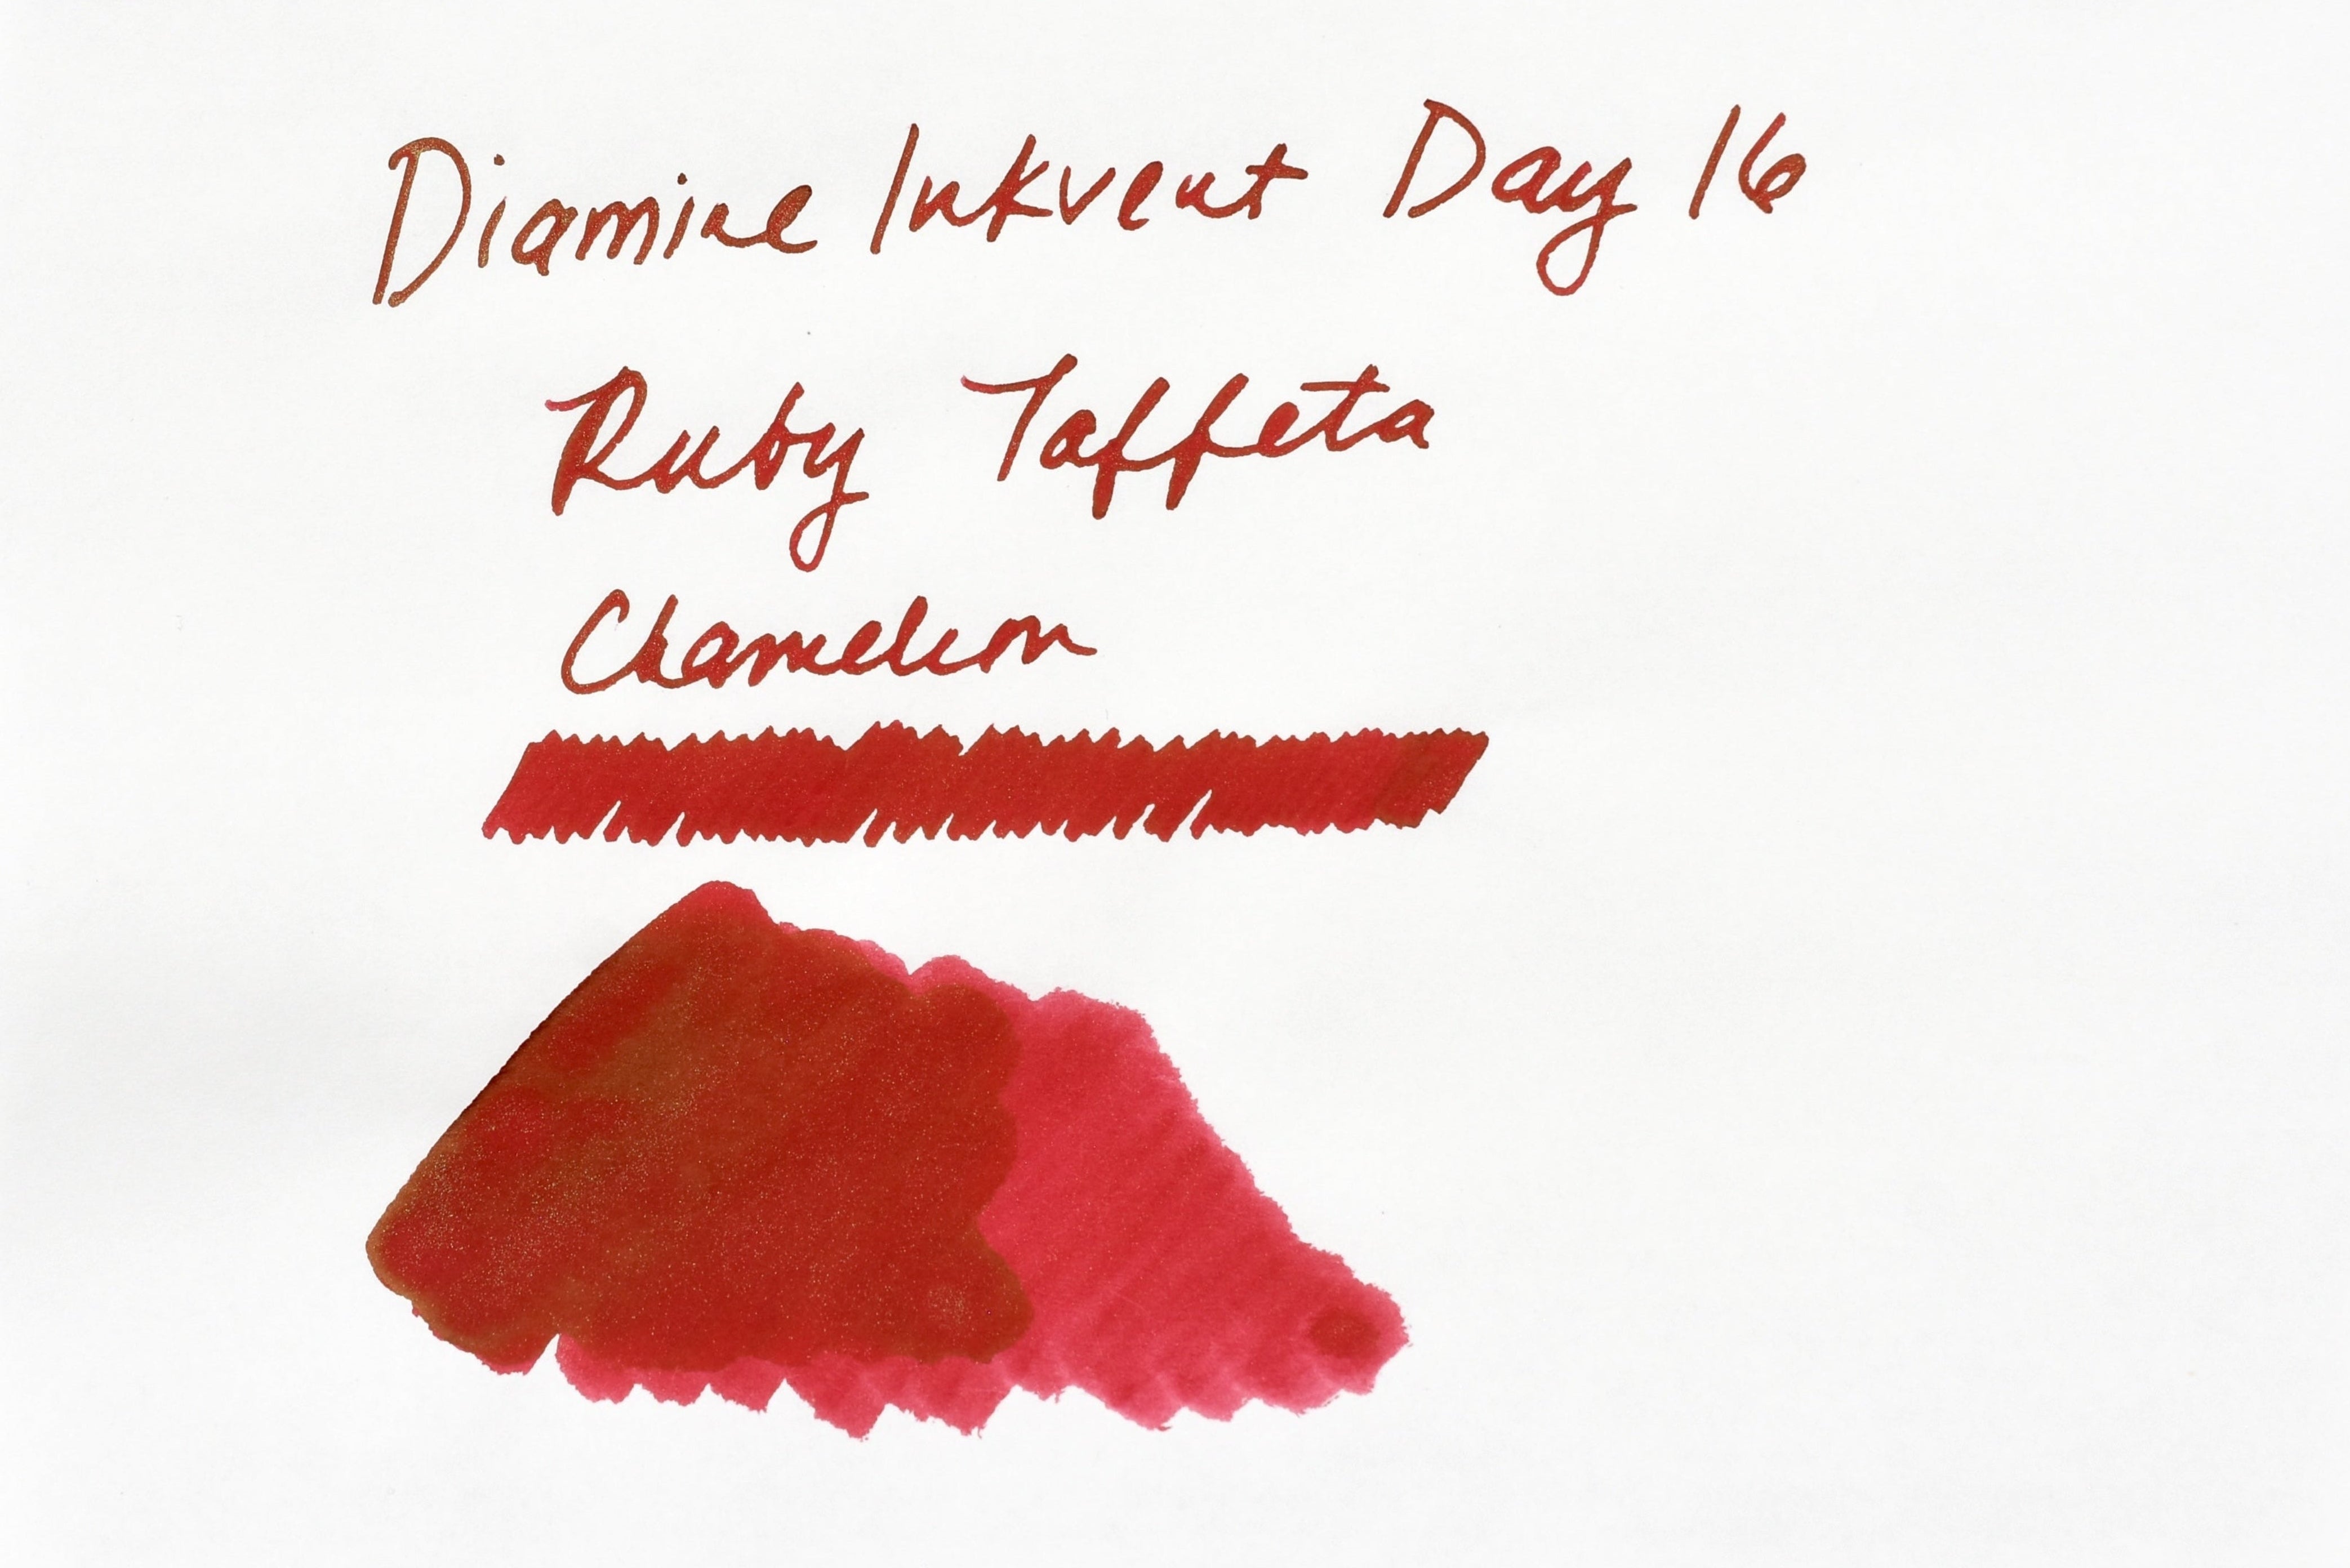 Diamine Inkvent Day 16
Ruby Taffeta
Chameleon